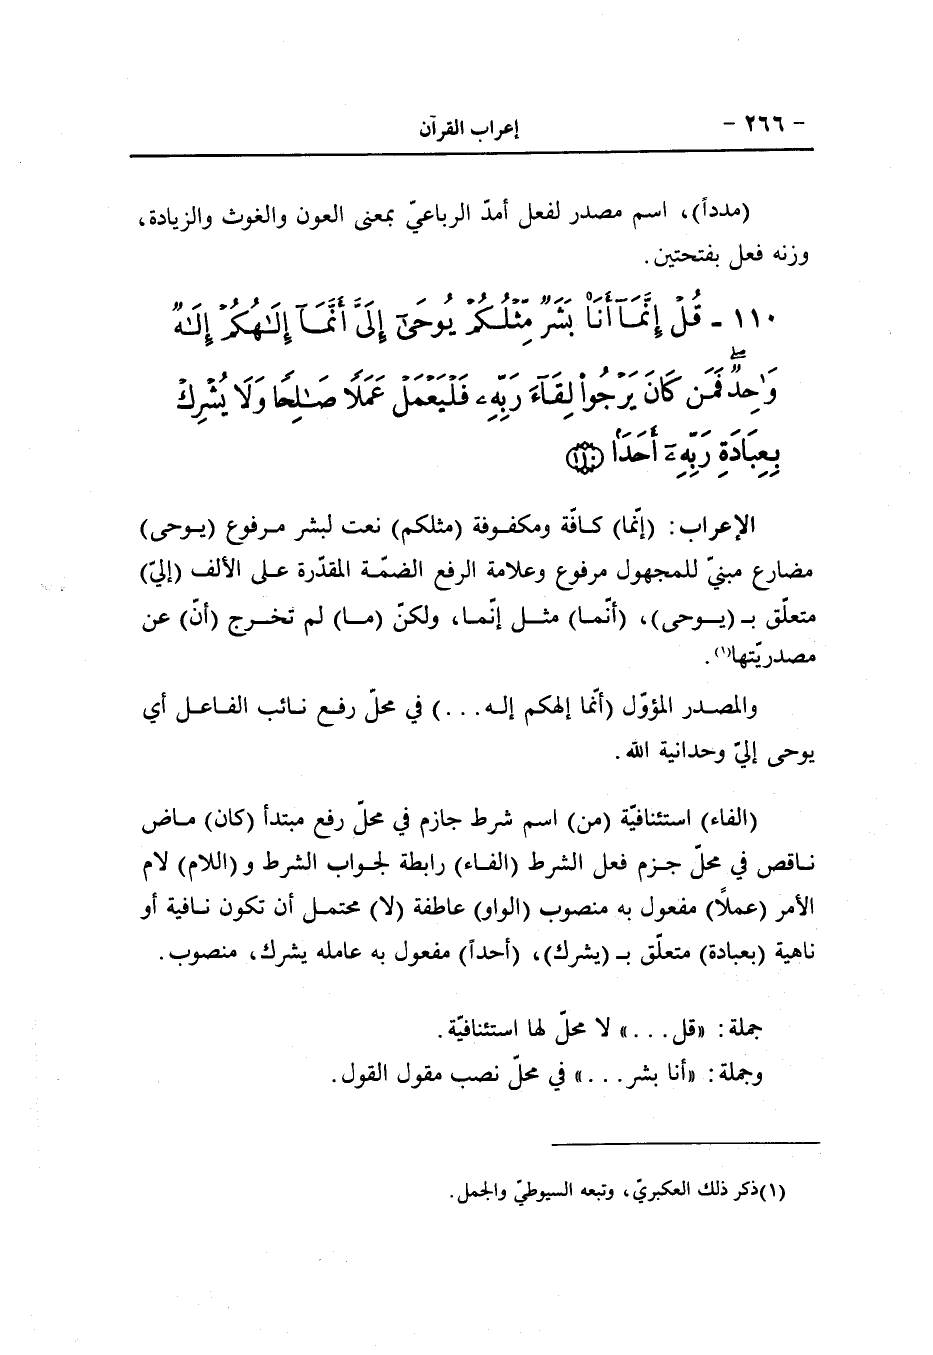 - ٢٦٦ -
إعراب القرآن
(مدداً)، اسم مصدر لفعل أمدّ الرباعيّ بمعنى العون والغوث والزيادة،
وزنه فعل بفتحتين.
١١٠ - قُلْ إِنَّمَآ أَنَا۠ بَشَرٌ مِّثْلُكُمْ يُوحَىٰٓ إِلَىَّ أَنَّمَآ إِلَـٰهُكُمْ إِلَـٰهٌ
وَٰحِدٌ ۖ فَمَن كَانَ يَرْجُوا۟ لِقَآءَ رَبِّهِۦ فَلْيَعْمَلْ عَمَلًا صَـٰلِحًا وَلَا يُشْرِكْ
بِعِبَادَةِ رَبِّهِۦٓ أَحَدَۢا ﴿١١٠﴾
الإعراب: (إنّما) كافّة ومكفوفة (مثلكم) نعت لبشر مرفوع (يوحى)
مضارع مبنيّ للمجهول مرفوع وعلامة الرفع الضمّة المقدّرة على الألف (إليّ)
متعلّق بـ (يوحى)، (أنّما) مثل إنّما، ولكنّ (ما) لم تخرج (أنّ) عن
مصدريّتها(١).
والمصدر المؤوّل (أنّما إلهكم إله...) في محلّ رفع نائب الفاعل أي
يوحى إليّ وحدانية الله.
(الفاء) استئنافيّة (من) اسم شرط جازم في محلّ رفع مبتدأ (كان) ماض
ناقص في محلّ جزم فعل الشرط (الفاء) رابطة لجواب الشرط و (اللام) لام
الأمر (عملًا) مفعول به منصوب (الواو) عاطفة (لا) محتمل أن تكون نافية أو
ناهية (بعبادة) متعلّق بـ (يشرك)، (أحداً) مفعول به عامله يشرك، منصوب.
جملة: «قل...» لا محلّ لها استئنافيّة.
وجملة: «أنا بشر...» في محلّ نصب مقول القول.
(١) ذكر ذلك العكبريّ، وتبعه السيوطيّ والجمل.